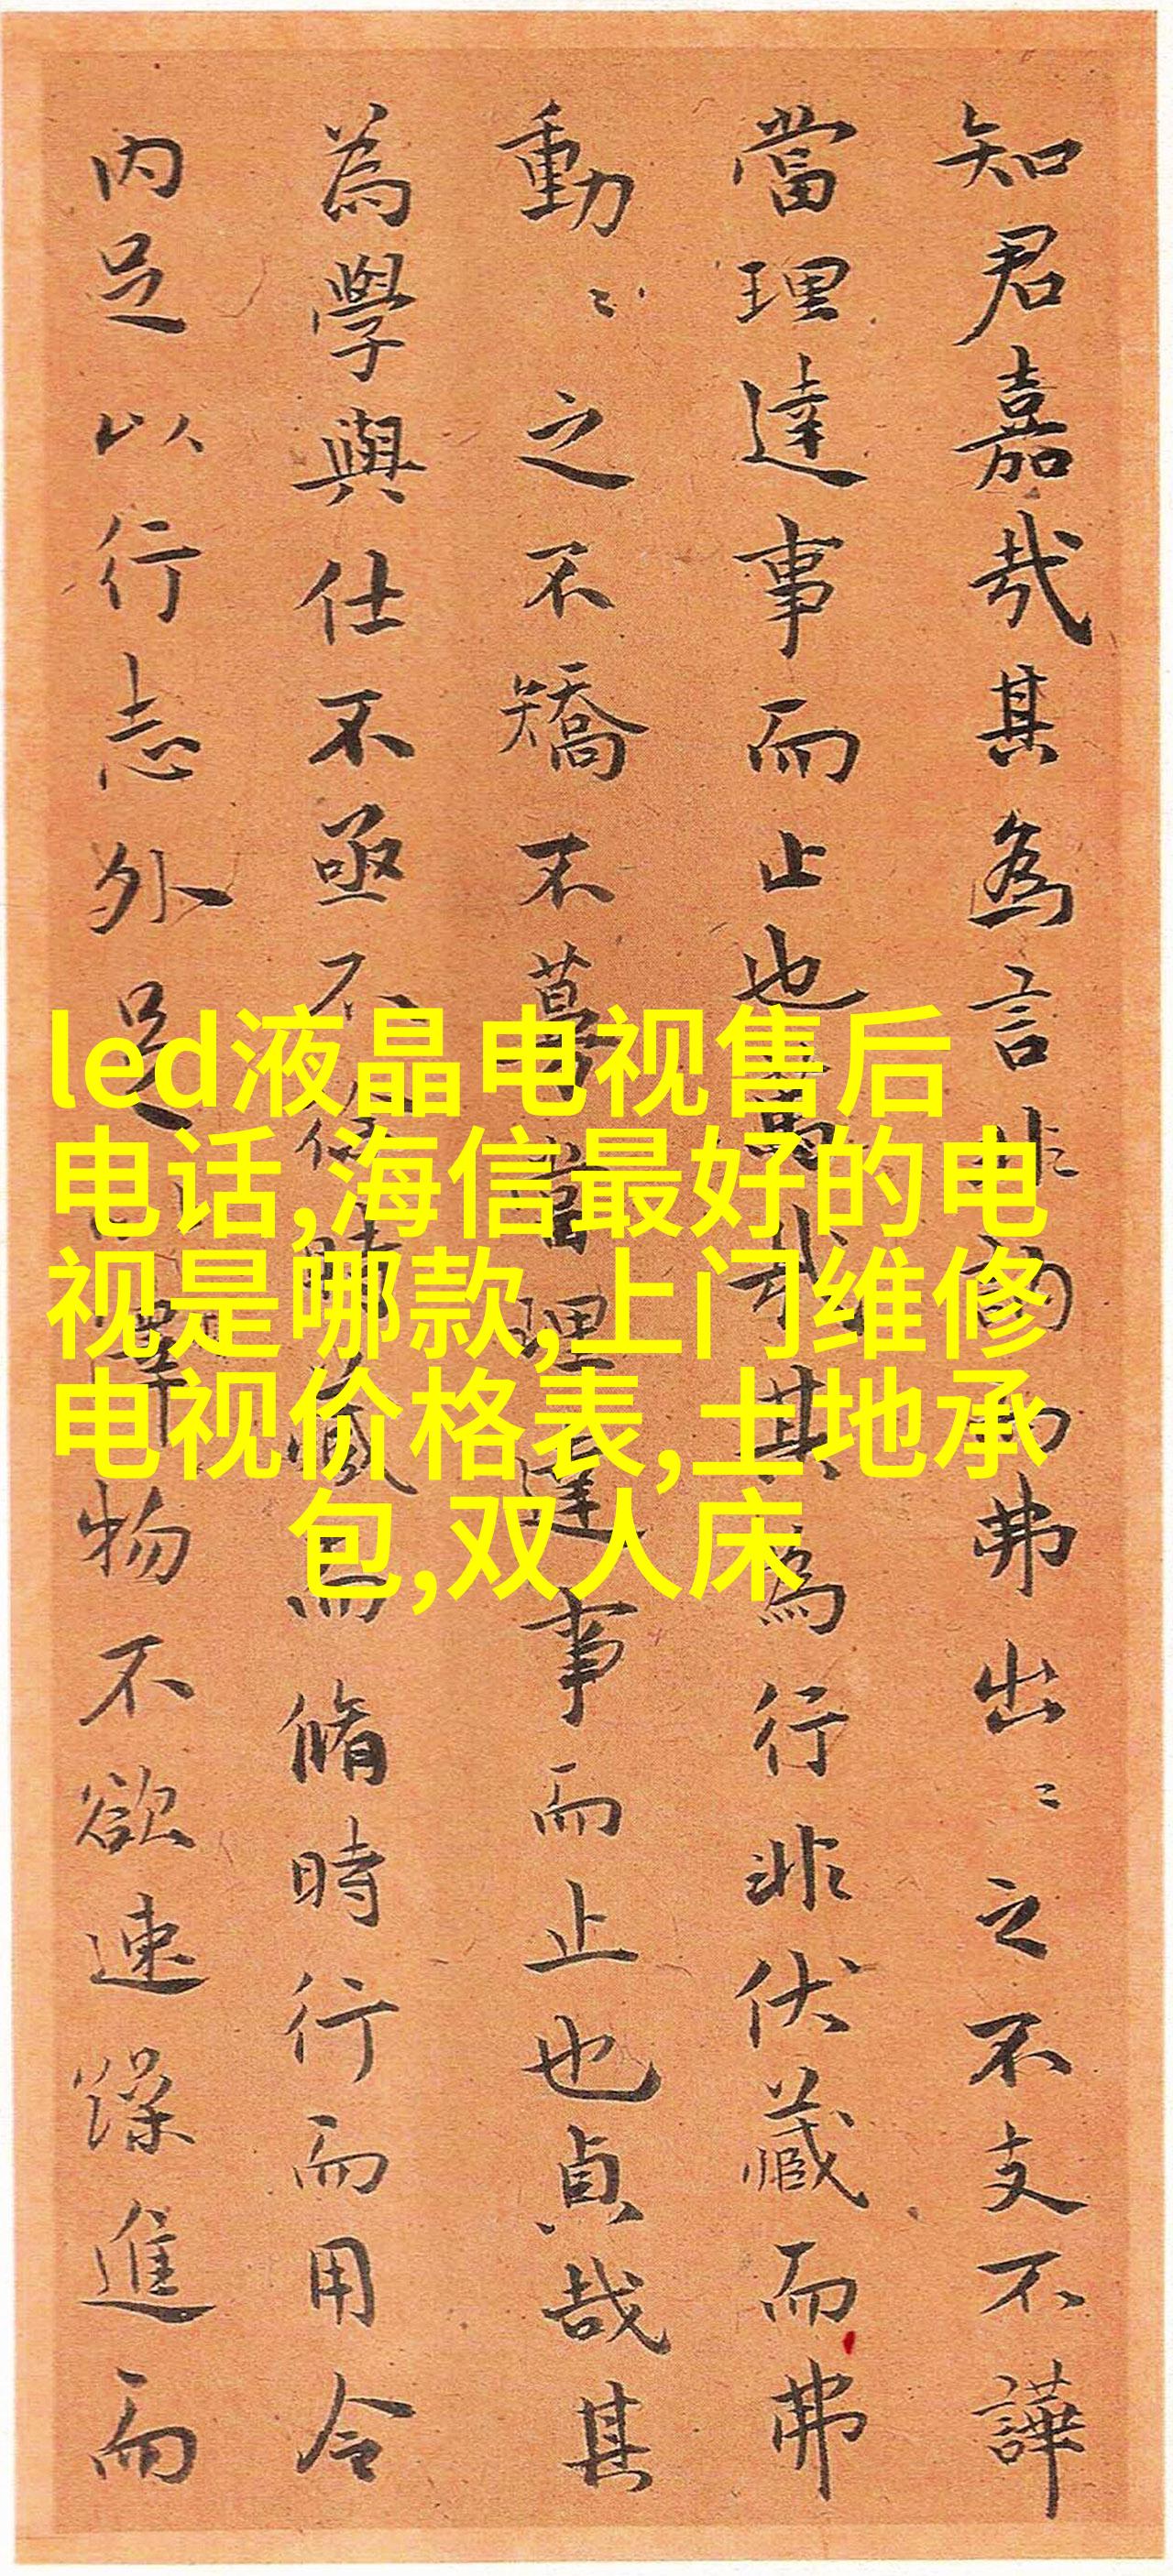 知君嘉哉其為言非而弗出〻之不支不譁
當理達事而止也哉其為行非伏藏而弗
動〻之不矯不蔓當理達事而止也貞哉其
為學與仕不亟不徐時藏而脩時行而用令
內足以行志外足擇物不欲速躁進而
led液晶电视售后
电话,海信最好的电
视是哪款,上门维修
电视价格表,土地承
包,双人床